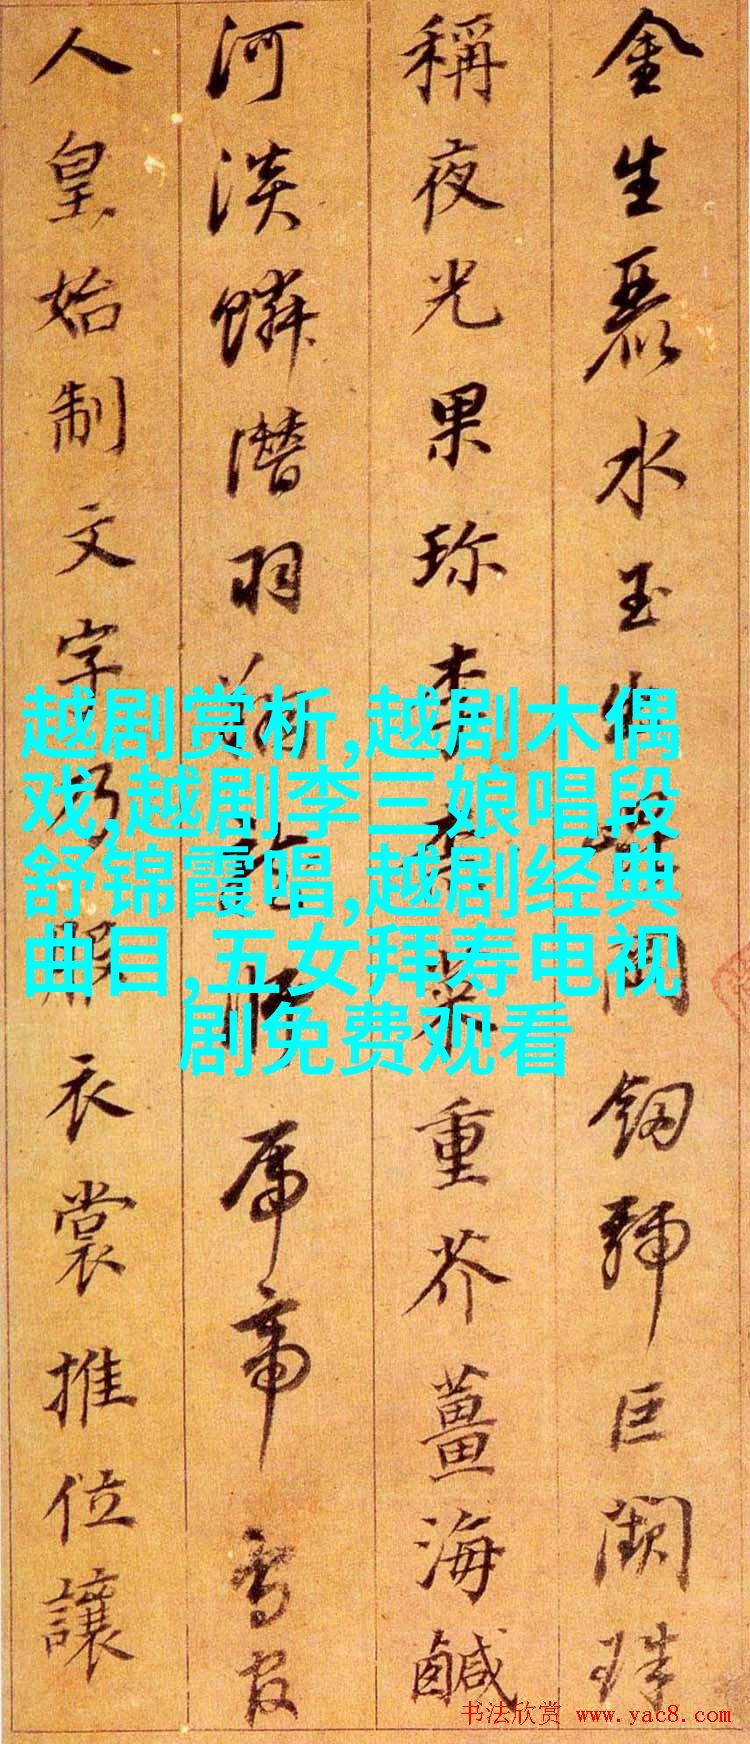 金生麗水玉出崑岡劒號巨闕珠
稱夜光果珍李柰菜重芥薑海鹹
河淡鱗潛羽翔龍師帝鳥官
人皇始制文字乃服衣裳推位讓
越剧赏析,越剧木偶
戏,越剧李三娘唱段
舒锦霞唱,越剧经典
曲目,五女拜寿电视
剧免费观看
书法欣赏 www.yac8.com